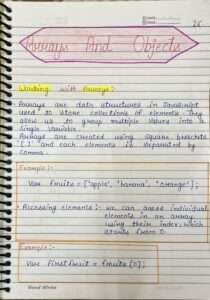 26
Arrays And Objects
Working with Arrays:-
• Arrays are data structures in JavaScript
used to store collections of elements. They
allow us to group multiple values into a
single variable.
• Arrays are created using square brackets
'[ ]' and each elements is separated by
comma.
Example:-
Var fruits = ["apple", "banana", "orange"];
• Accessing elements:- we can access individual
elements in an array
using their index, which
starts from 0.
Example:-
Var first fruit = fruits [0];